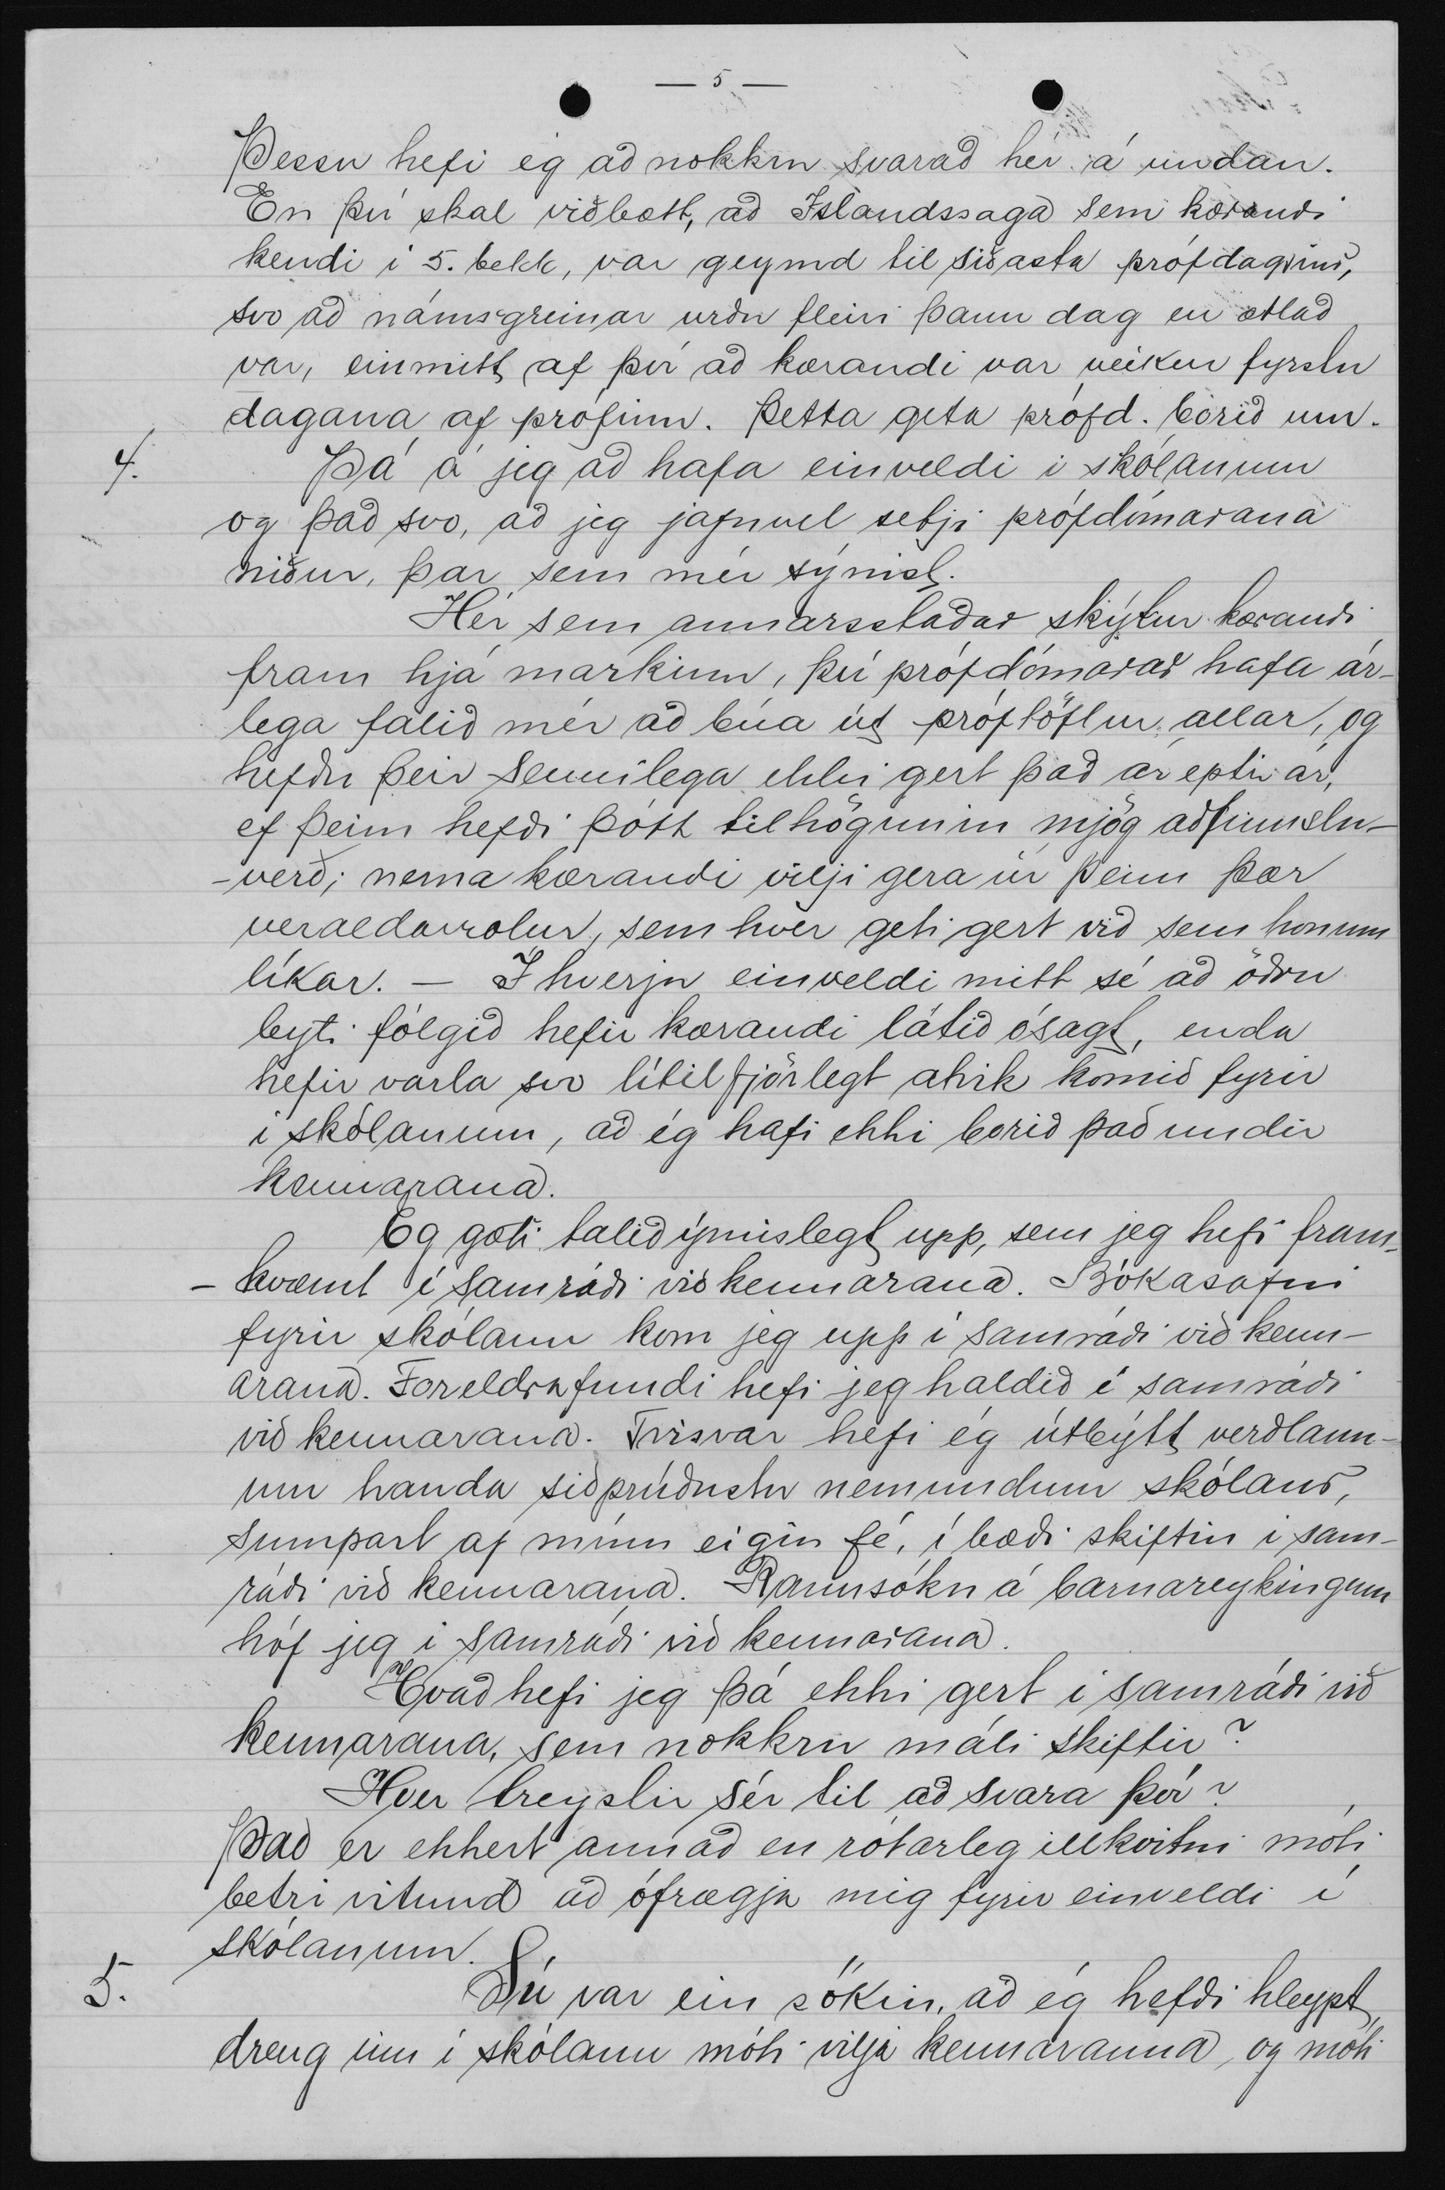 — 5 —
Þessu hefi ég að nokkru svarað hér á undan.
En því skal viðbætt, að Íslandssaga sem kærandi
kendi i 5. bekk, var geymd til síðasta prófdagsins,
svo að námsgreinar urðu fleiri þann dag en ætlað
var, einmitt af því að kærandi var veikur fyrstu
dagana af prófinu. Þetta geta prófd. borið um.
4. Þá á jeg að hafa einveldi i skólanum
og það svo, að jeg jafnvel setji prófdómarana
niður, þar sem mér sýnist.
Hér sem annarsstaðar skýtur kærandi
fram hjá markinu, því prófdómarar hafa ár-
lega falið mér að búa út próftöflur allar, og
hefðu þeir sennilega ekki gert það ár eptir ár,
ef þeim hefði þótt tilhögunin mjög aðfinnslu-
-verð; nema kærandi vilji gera úr þeim þær
veraldarvolur, sem hver geti gert við sem honum
líkar. — Í hverju einveldi mitt sé að öðru
leyti fólgið hefir kærandi látið ósagt, enda
hefir varla svo lítilfjörlegt atvik komið fyrir
i skólanum, að ég hafi ekki borið það undir
kennarana.
Eg gæti talið ýmislegt upp, sem jeg hefi fram-
- kvæmt í samráði við kennarana. Bókasafni
fyrir skólann kom jeg upp i samráði við kenn-
arana. Foreldrafundi hefi jeg haldið í samráði
við kennarana. Tvisvar hefi ég útbýtt verðlaun-
um handa siðprúðustu nemundum skólans,
sumpart af mínu eigin fé, í bæði skiftin i sam-
ráði við kennarana. Rannsókn á barnareykingum
hóf jeg i samráði við kennarana.
Hvað hefi jeg þá ekki gert i samráði við
kennarana, sem nokkru máli skiftir?
Hver treystir sér til að svara því?
Það er ekkert annað en rótarleg illkvitni móti
betri vitund að ófrægja mig fyrir einveldi í
skólanum.
5. Sú var ein sökin, að ég hefði hleypt
dreng inn i skólann móti vilja kennaranna, og móti